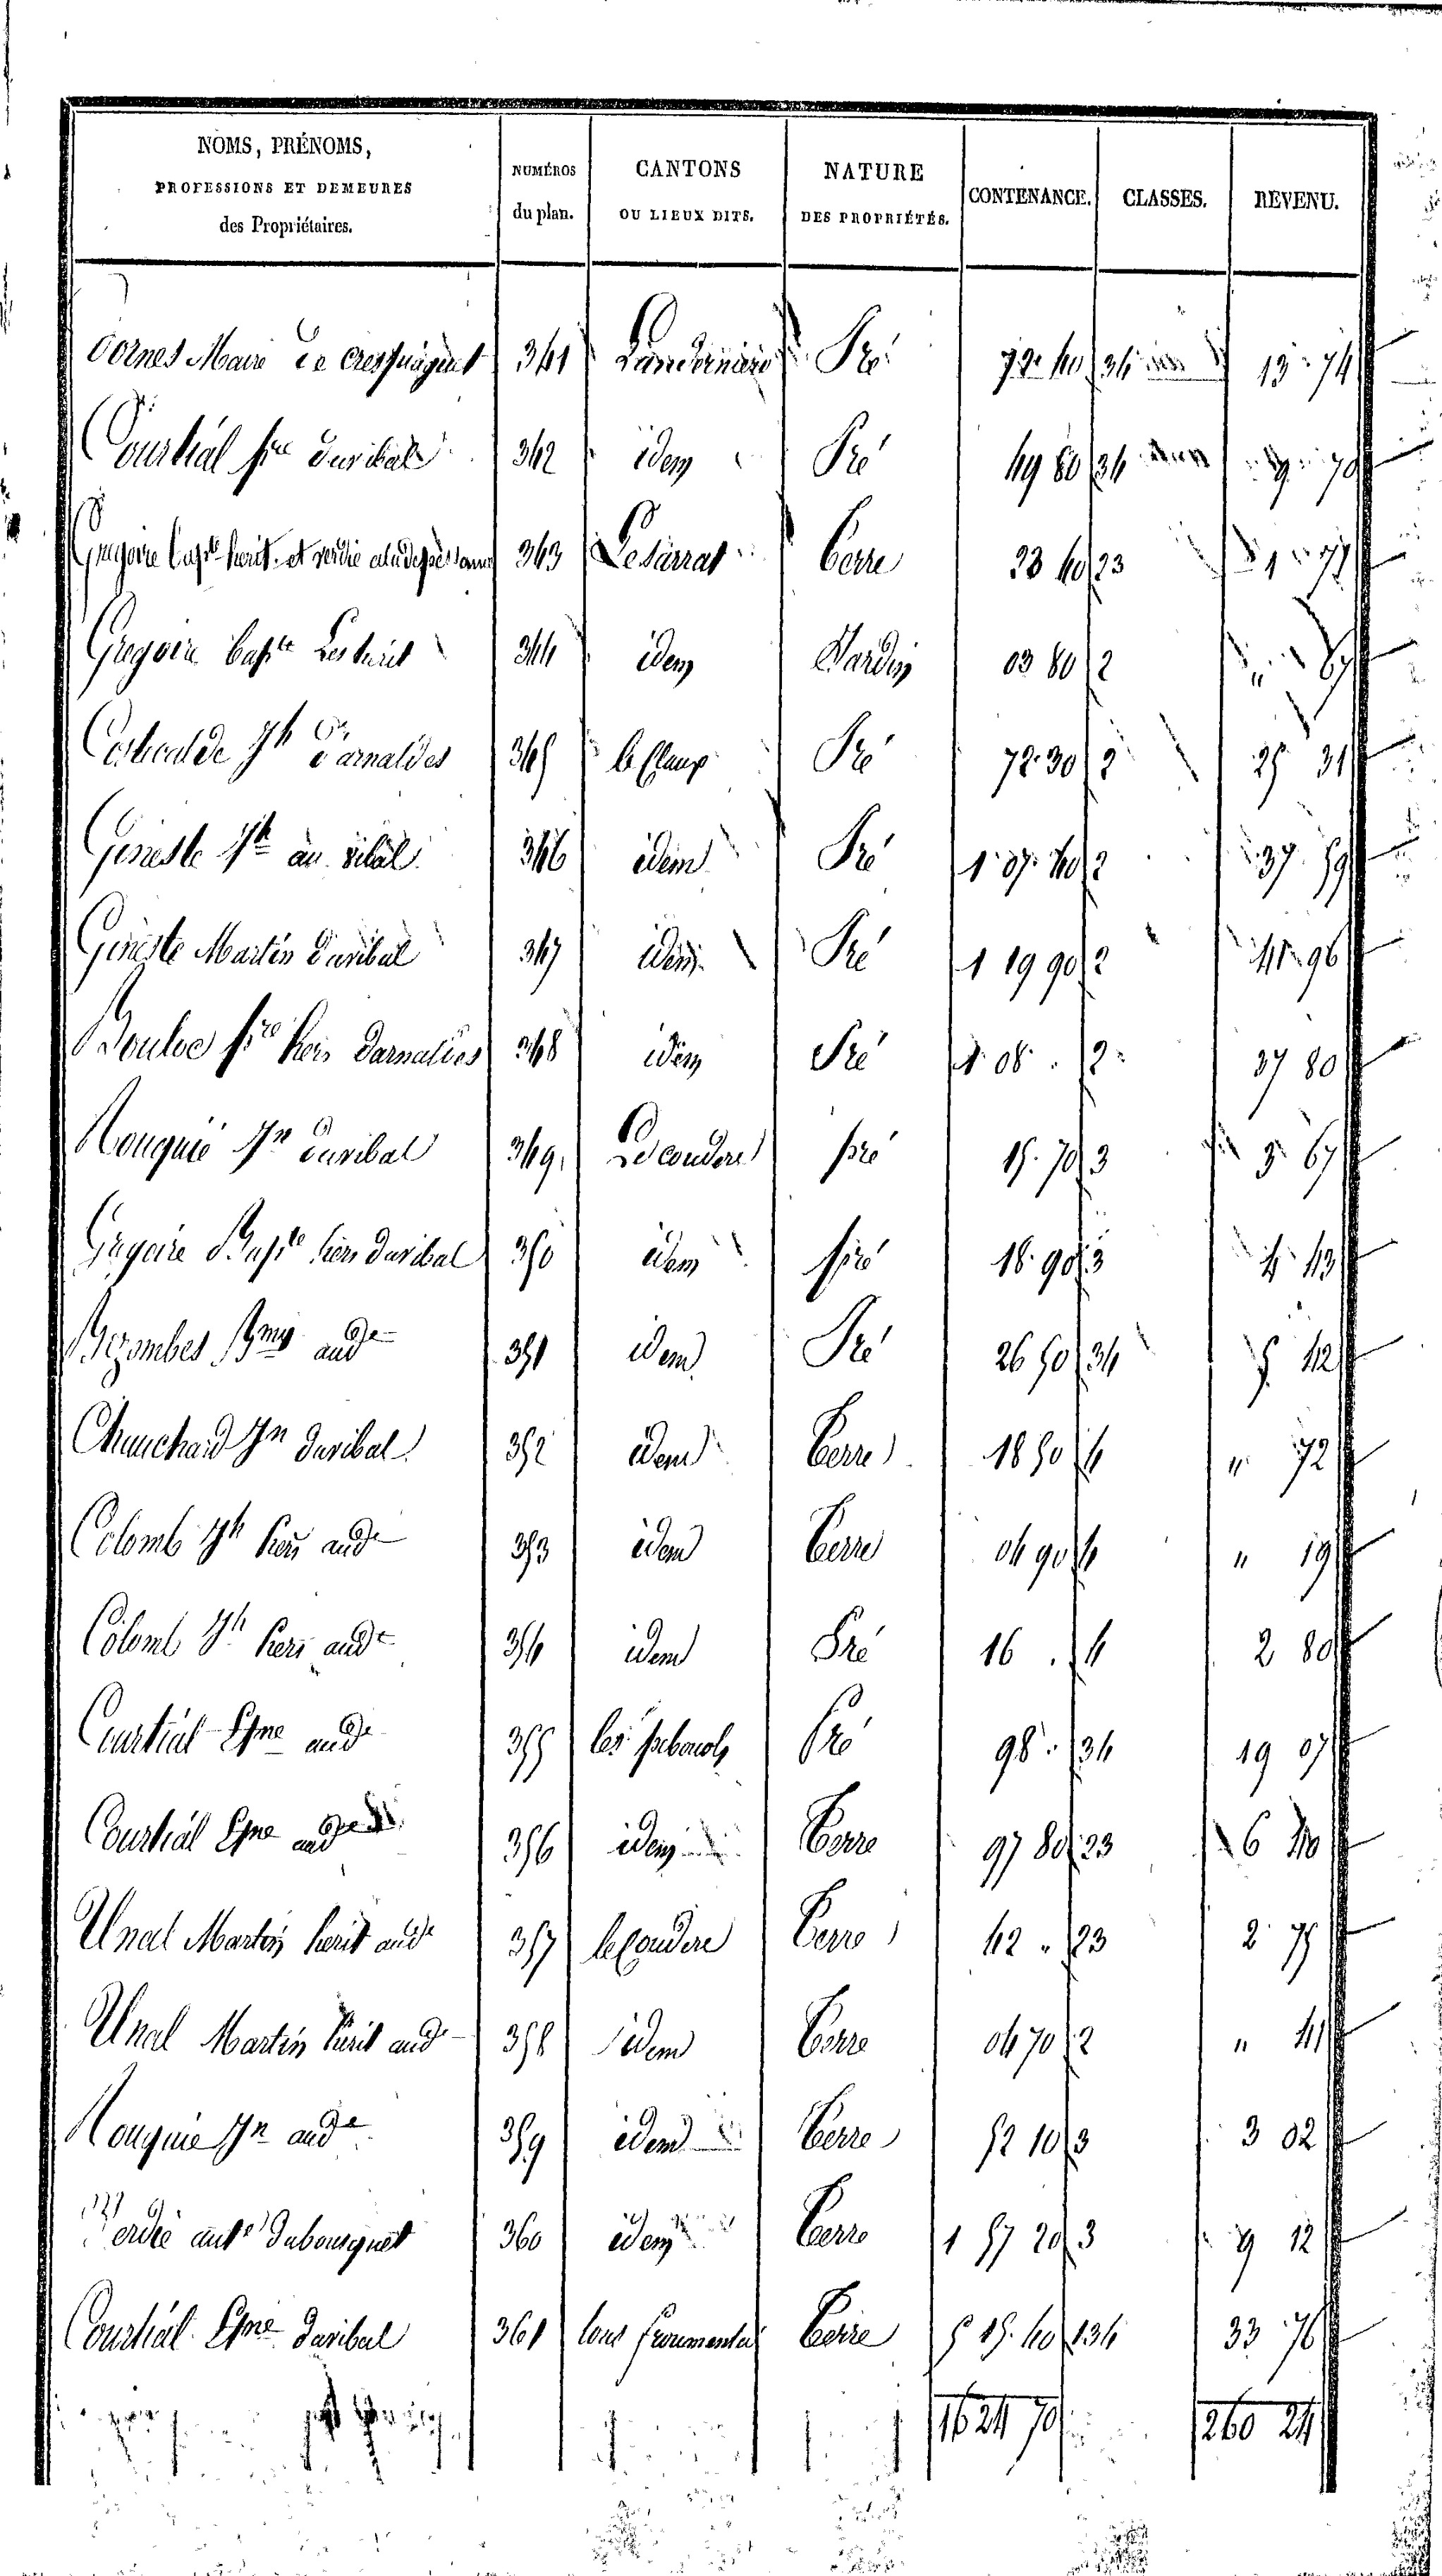 NOMS, PRÉNOMS,
PROFESSIONS ET DEMEURES
des Propriétaires.
NUMÉROS
du plan.
CANTONS
OU LIEUX DITS.
NATURE
DES PROPRIÉTÉS.
CONTENANCE.
CLASSES.
REVENU.
Marie de 341 Pré 72 40 34 13 74
Courtial 342 idem Pré 49 80 34 9 70
Gregoire Bapte herit. et verdié 343 Lesarrat Terre 23 40 23 1 77
Gregoire Bapte 344 idem Jardin 03 80 2 " 67
Jh d'arnaldes 345 le Claux Pré 72 30 2 25 31
Geneste au vibal 346 idem Pré 1 07 40 2 37 59
Geneste Martin duvibal 347 idem Pré 1 19 90 2 41 96
Bouloc hers darnaldes 348 idem Pré 1 08 . 2 37 80
Nouguié Jn duvibal 349 Le couderc pré 15 70 3 3 67
Gregoire Bapte hers duvibal 350 idem pré 18 90 3 4 43
aude 351 idem Pré 26 50 34 5 42
Chauchard Jn duvibal 352 idem Terre 18 50 4 " 72
Colomb Jh hers aude 353 idem Terre 04 90 4 " 19
Colomb Jh hers aude 354 idem Pré 16 . 4 2 80
Courtial Ene aude 355 les Pré 98 . 34 19 07
Courtial Ene aude 356 idem Terre 97 80 23 6 40
Unal Martin herit aude 357 le Couderc Terre 42 " 23 2 75
Unal Martin herit aude 358 idem Terre 04 70 2 " 41
Nouguié Jn aude 359 idem Terre 52 10 3 3 02
Verdié ante Dubousquet 360 idem Terre 1 57 20 3 9 12
Courtial Ene duvibal 361 lous froumental Terre 5 15 40 134 33 76
16 24 70 260 24